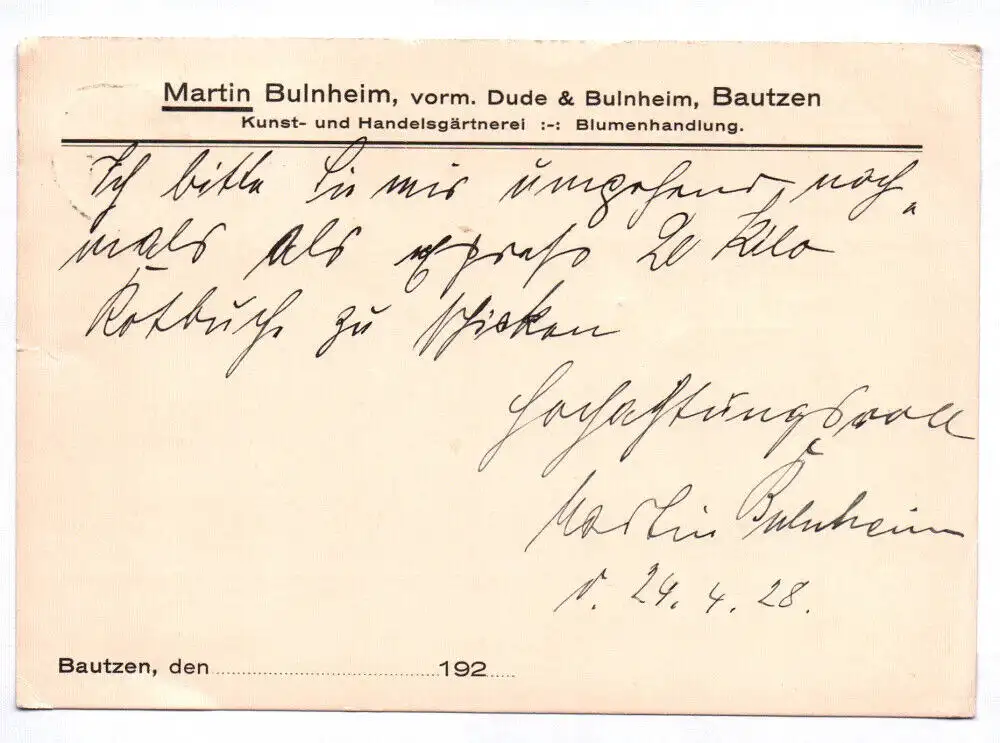 Martin Bulnheim, vorm. Dude & Bulnheim, Bautzen
Kunst- und Handelsgärtnerei :-: Blumenhandlung.
Ich bitte Sie mir umgehend noch„
mals als expreß 20 Kilo
Rotbuche zu schicken
Hochachtungsvoll
Martin Bulnheim
d. 24. 4. 28.
Bautzen, den 192